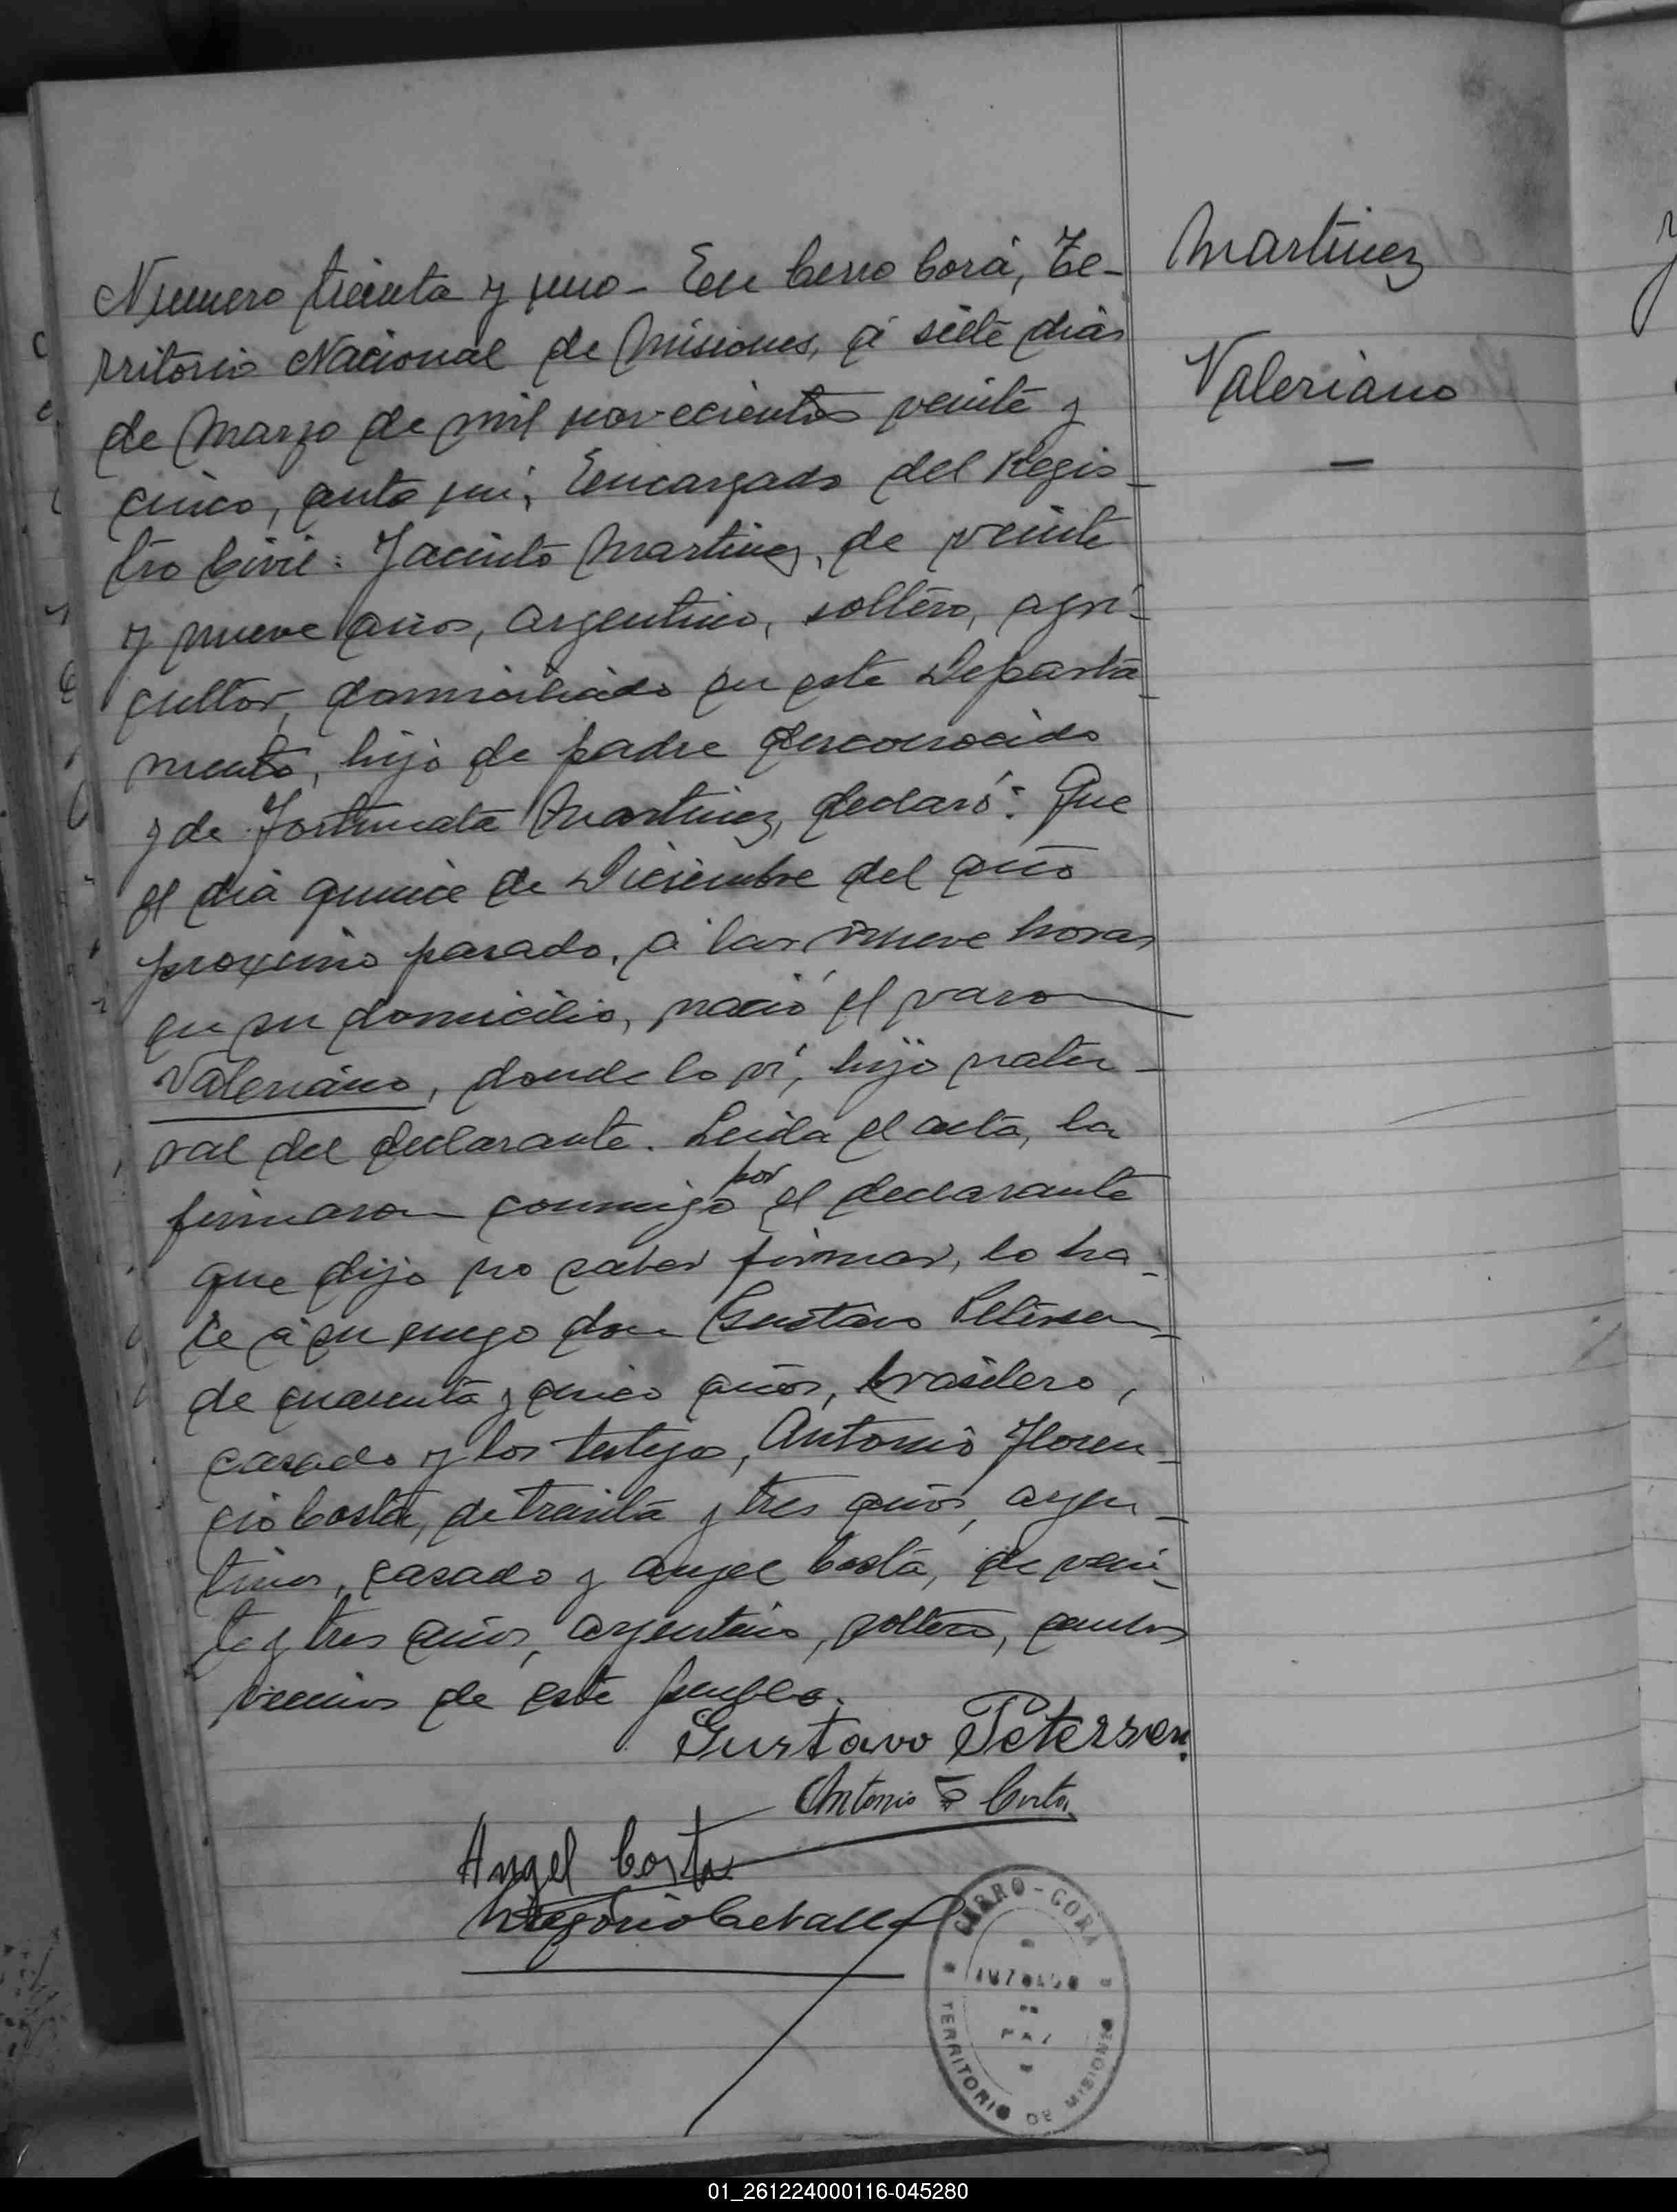 Numero treinta y uno - En Cerro Corá, Te-
rritorio Nacional de Misiones, á siete dias
de Marzo de mil novecientos veinte y
cinco, ante mi, Encargado del Regis-
tro Civil: Jacinto Martinez, de veinte
y nueve años, argentino, soltero, agri-
cultor, domiciliado en este Departa-
mento, hijo de padre desconocido
y de Fortunata Martinez, declaró: Que
el dia quince de Diciembre del año
proximo pasado, a las nueve horas
en su domicilio, nació el varon
Valeriano, donde lo ví, hijo natu-
ral del declarante. Leida el acta, la
firmaron conmigo por el declarante
que dijo no saber firmar, lo ha-
ce á su ruego don Gustavo Petersen
de cuarenta y cinco años, brasilero,
casado y los testigos, Antonio Floren-
cio Costa, de treinta y tres años, argen-
tino, casado y Angel Costa, de vein-
te y tres años, argentino, soltero, ambos
vecinos de este pueblo.
Gustavo Petersen
Antonio F Costa
Angel Costa
CERRO-CORÁ
JUZGADO
DE
PAZ
TERRITORIO DE MISIONES
Martinez
Valeriano
01_261224000116-045280